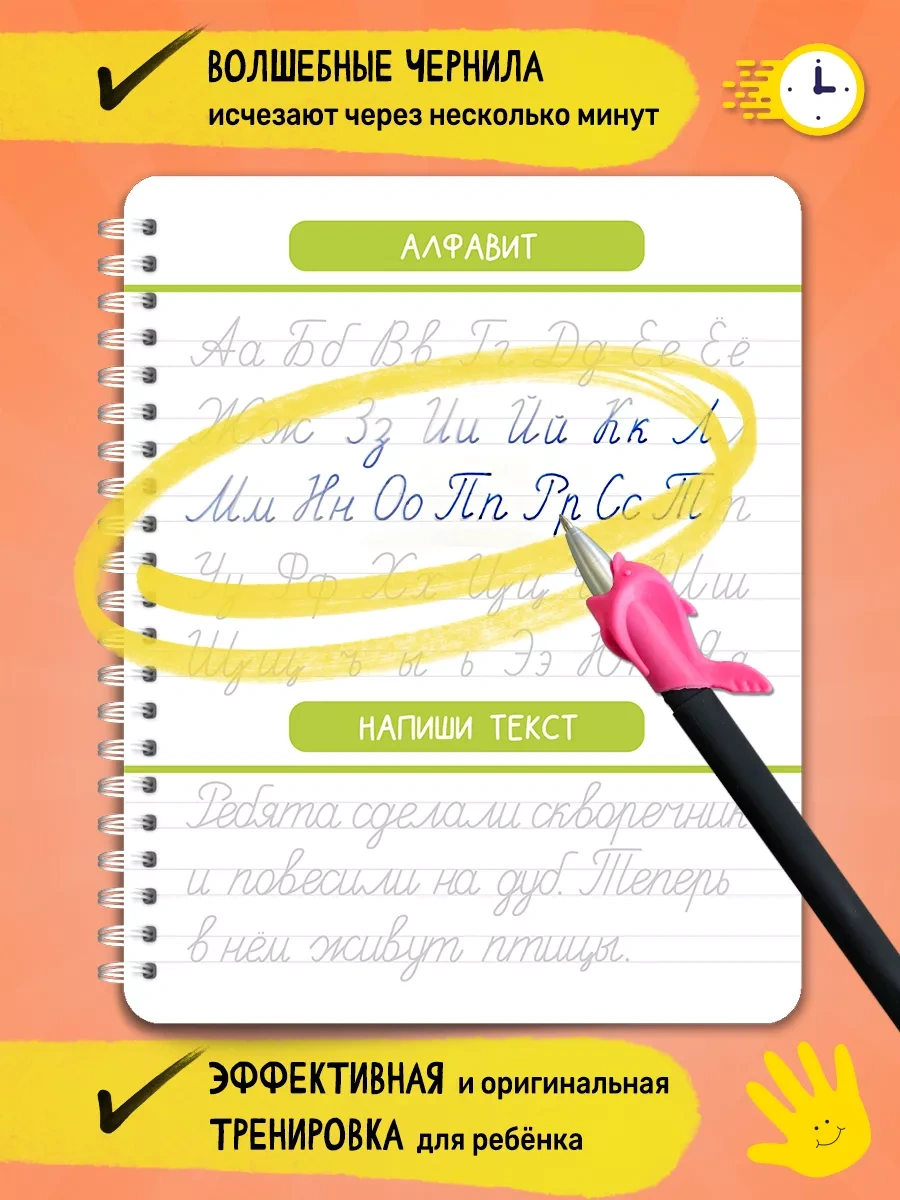 ВОЛШЕБНЫЕ ЧЕРНИЛА
исчезают через несколько минут
АЛФАВИТ
Аа Бб Вв Гг Дд Ее Ёё
Жж Зз Ии Йй Кк Лл
Мм Нн Оо Пп Рр Сс Тт
Уу Фф Хх Цц Шш
Щщ ъ ы ь Ээ Яя
НАПИШИ ТЕКСТ
Ребята сделали скворечник
и повесили на дуб. Теперь
в нём живут птицы.
ЭФФЕКТИВНАЯ и оригинальная
ТРЕНИРОВКА для ребёнка